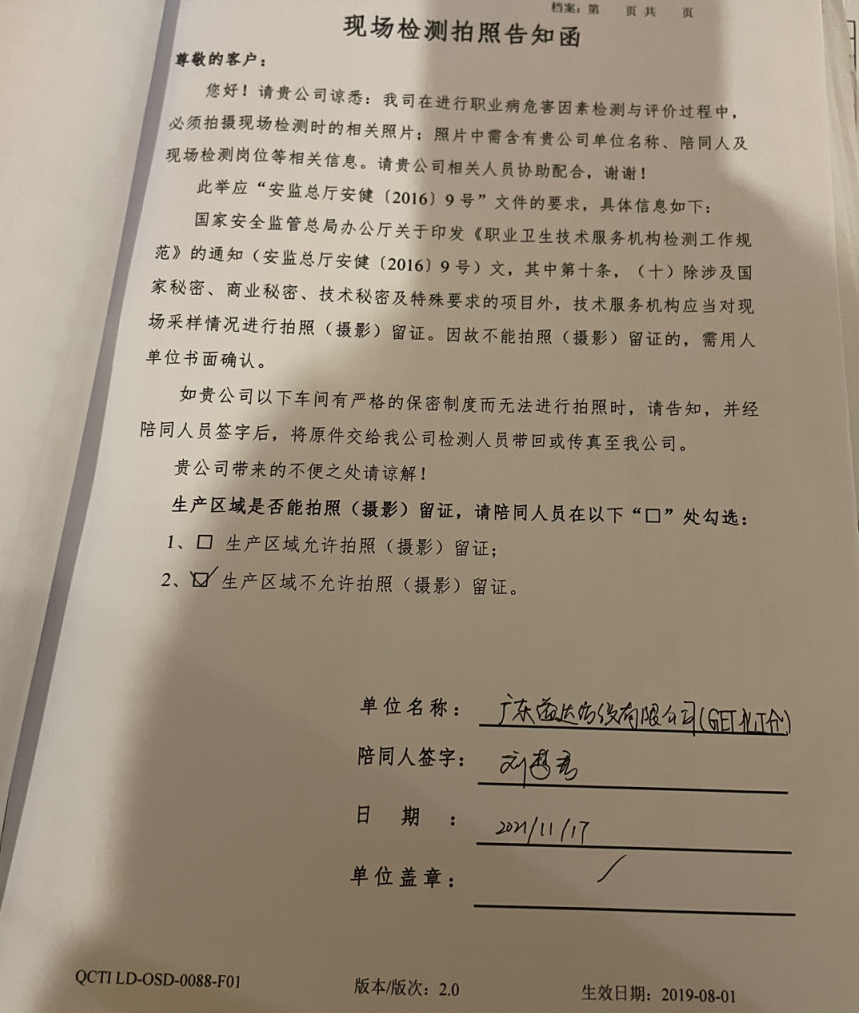 档案：第　　页 共　　页
现场检测拍照告知函
尊敬的客户：
您好！请贵公司谅悉：我司在进行职业病危害因素检测与评价过程中，
必须拍摄现场检测时的相关照片；照片中需含有贵公司单位名称、陪同人及
现场检测岗位等相关信息。请贵公司相关人员协助配合，谢谢！
此举应“安监总厅安健〔2016〕9 号”文件的要求，具体信息如下：
国家安全监管总局办公厅关于印发《职业卫生技术服务机构检测工作规
范》的通知（安监总厅安健〔2016〕9 号）文，其中第十条，（十）除涉及国
家秘密、商业秘密、技术秘密及特殊要求的项目外，技术服务机构应当对现
场采样情况进行拍照（摄影）留证。因故不能拍照（摄影）留证的，需用人
单位书面确认。
如贵公司以下车间有严格的保密制度而无法进行拍照时，请告知，并经
陪同人员签字后，将原件交给我公司检测人员带回或传真至我公司。
贵公司带来的不便之处请谅解！
生产区域是否能拍照（摄影）留证，请陪同人员在以下“□”处勾选：
1、□ 生产区域允许拍照（摄影）留证；
2、☑ 生产区域不允许拍照（摄影）留证。
单位名称： 广东溢达纺织有限公司(GET
陪同人签字： 刘
日　期　： 2021/11/17
单位盖章： /
QCTI LD-OSD-0088-F01　　版本/版次：2.0　　生效日期：2019-08-01